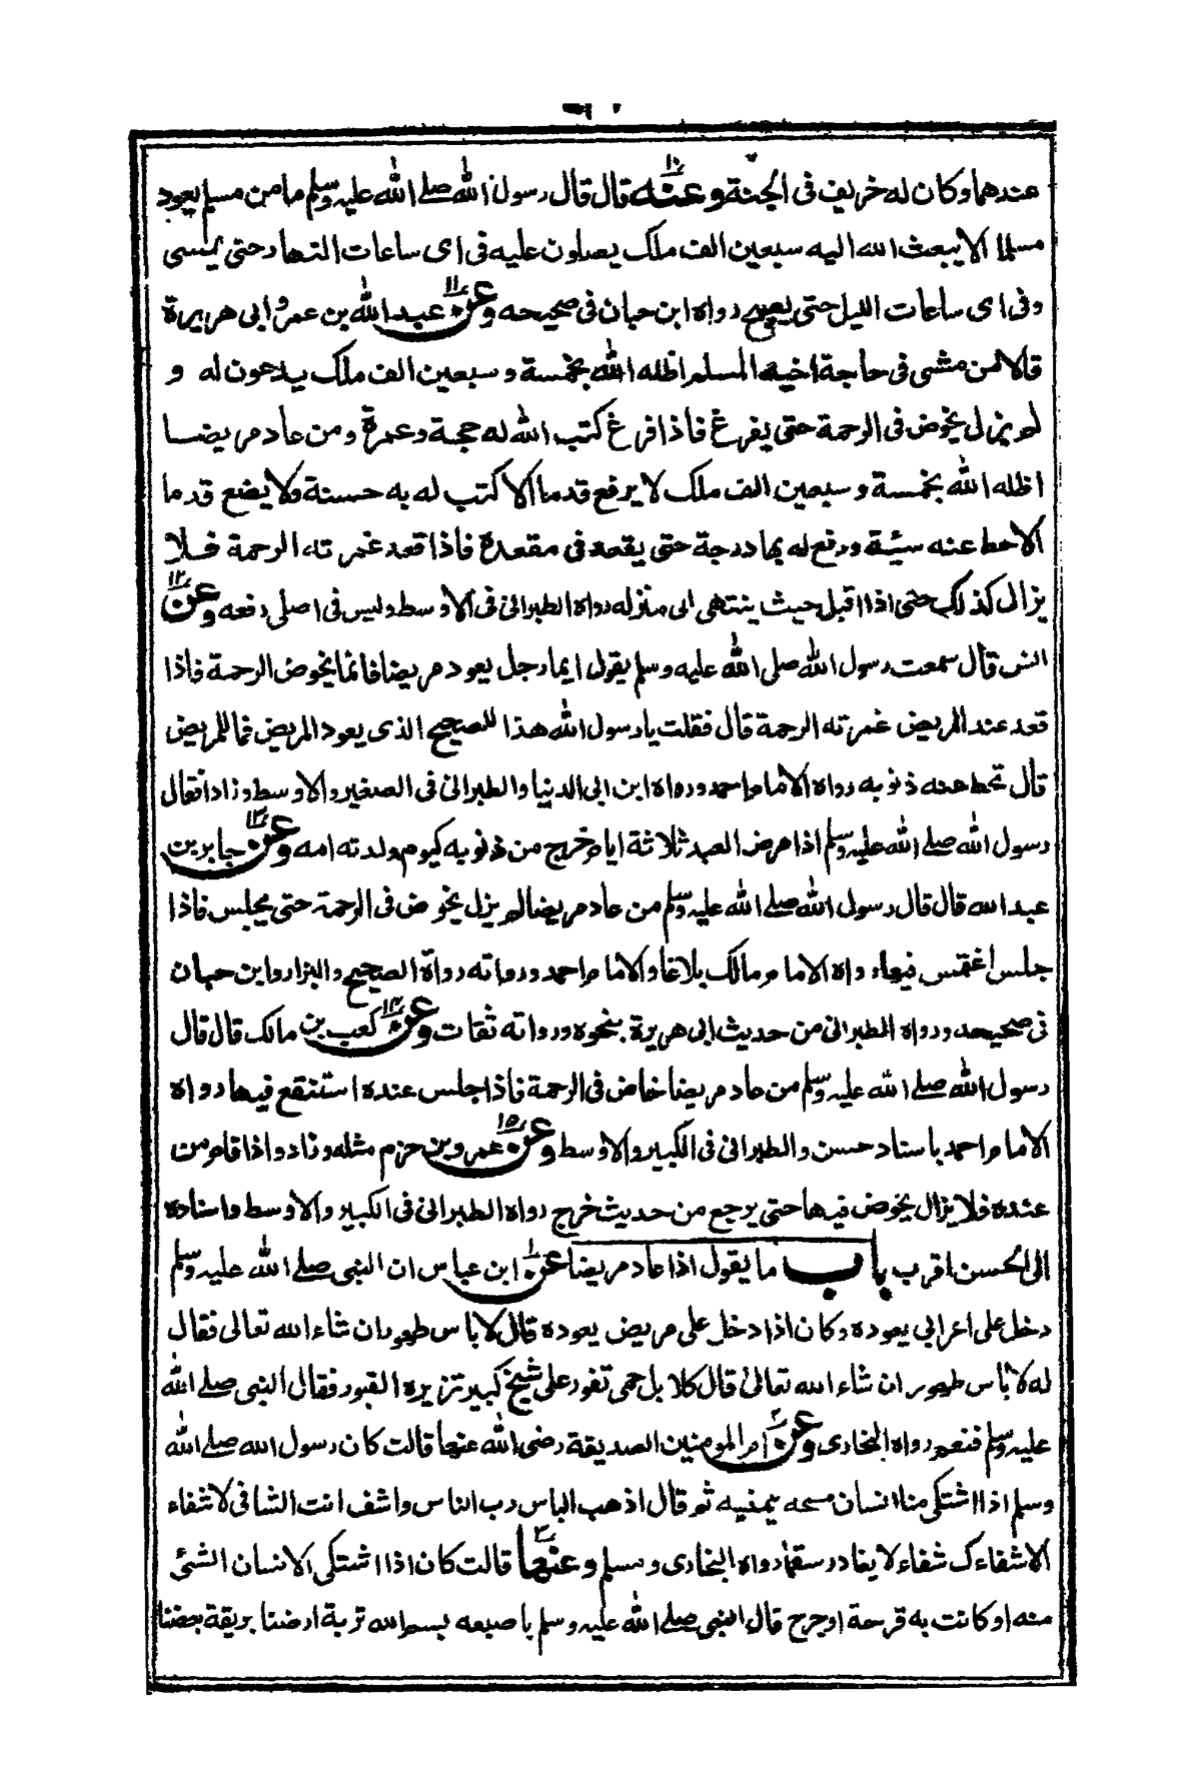 عندهما وكان له خريف فى الجنة وعنه ١٠ قال قال رسول الله صلے الله عليه وسلم ما من مسلم يعود
مسلما الا يبعث الله اليه سبعين الف ملك يصلون عليه فى اى ساعات النهار حتى يمسى
وفى اى ساعات الليل حتى يصبح رواه ابن حبان فى صحيحه وعن ١١ عبد الله بن عمر وابى هريرة
قالا من مشى فى حاجة اخيه المسلم اظله الله بخمسة وسبعين الف ملك يدعون له و
لم يزل يخوض فى الرحمة حتى يفرغ فاذا فرغ كتب الله له حجة وعمرة ومن عاد مريضا
اظله الله بخمسة وسبعين الف ملك لا يرفع قدما الا كتب له به حسنة ولا يضع قدما
الا حط عنه سيئة ورفع له بها درجة حتى يقعد فى مقعده فاذا قعد غمرته الرحمة فلا
يزال كذلك حتى اذا اقبل حيث ينتهى الى منزله رواه الطبرانى فى الاوسط وليس فى اصلى رفعه وعن ١٢
انس قال سمعت رسول الله صلى الله عليه وسلم يقول ايما رجل يعود مريضا فانما يخوض الرحمة فاذا
قعد عند المريض غمرته الرحمة قال فقلت يا رسول الله هذا للصحيح الذى يعود المريض فما للمريض
قال تحط عنه ذنوبه رواه الامام احمد ورواه ابن ابى الدنيا والطبرانى فى الصغير والاوسط وزادا فقال
رسول الله صلے الله عليه وسلم اذا مرض العبد ثلاثة ايام خرج من ذنوبه كيوم ولدته امه وعن ١٣ جابر بن
عبد الله قال قال رسول الله صلے الله عليه وسلم من عاد مريضا لم يزل يخوض فى الرحمة حتى يجلس فاذا
جلس اغتمس فيها رواه الامام مالك بلاغا والامام احمد ورواته رواة الصحيح والبزار وابن حبان
فى صحيحه ورواه الطبرانى من حديث ابى هريرة بنحوه ورواته ثقات وعن ١٤ كعب بن مالك قال قال
رسول الله صلے الله عليه وسلم من عاد مريضا خاض فى الرحمة فاذا جلس عنده استنقع فيها رواه
الامام احمد باسناد حسن والطبرانى فى الكبير والاوسط وعن ١٥ عمرو بن حزم مثله وزاد واذا قام من
عنده فلا يزال يخوض فيها حتى يرجع من حديث خرج رواه الطبرانى فى الكبير والاوسط واسناده
الى الحسن اقرب باب ما يقول اذا عاد مريضا عن ١ ابن عباس ان النبى صلے الله عليه وسلم
دخل على اعرابى يعوده وكان اذا دخل على مريض يعوده قال لا باس طهور ان شاء الله تعالى فقال
له لا باس طهور ان شاء الله تعالى قال كلا بل حمى تفور على شيخ كبير تزيره القبور فقال النبى صلے الله
عليه وسلم فنعم رواه البخارى وعن ٢ ام المومنين الصديقة رضى الله عنها قالت كان رسول الله صلے الله
وسلم اذا اشتكى منا انسان مسحه بيمينه ثم قال اذهب الباس رب الناس واشف انت الشافى لا شفاء
الا شفاءك شفاء لا يغادر سقما رواه البخارى ومسلم وعنها ٣ قالت كان اذا اشتكى الانسان الشئ
منه او كانت به قرحة او جرح قال النبى صلے الله عليه وسلم باصبعه بسم الله تربة ارضنا بريقة بعضنا